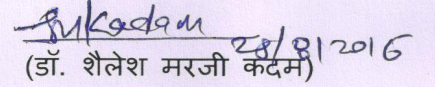 Smkadam 28/8/2016
(डॉ. शैलेश मरजी कदम)